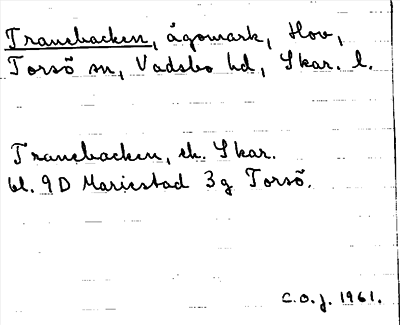 Transbacken, ägomark, Hov,
Torsö sn, Vadsbo hd, Skar. l.
Transbacken, ek. Skar.
bl. 9D Mariestad 3g Torsö.
C.O.J. 1961.